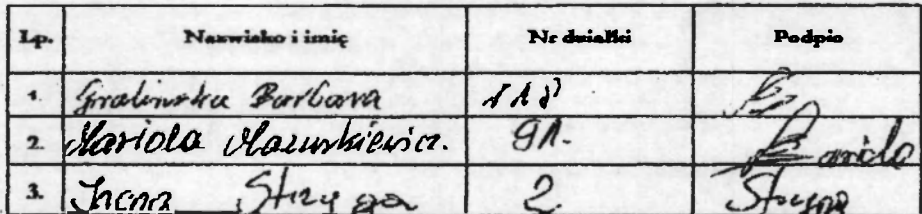 Lp. Nazwisko i imię Nr działki Podpis
1. Gralinska Barbara 118
2. Mariola Mazurkiewicz. 91. Mariola
3. Strzyga 2